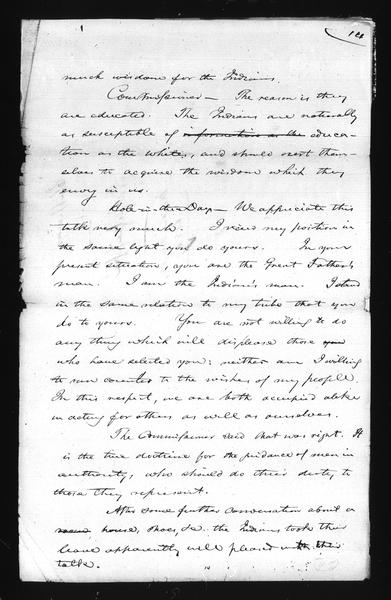 128
much wisdom for the Indians.
Commissioner — The reason is they
are educated. The Indians are naturally
as susceptible of information as the educa-
tion as the whites, and should exert them-
selves to acquire the wisdom which they
envy in us.
Hole-in-the-Day — We appreciate this
talk very much. I view my position in
the same light you do yours. In your
present situation, you are the Great Father's
man. I am the Indian's man. I stand
in the same relation to my tribe that you
do to yours. You are not willing to do
any thing which will displease those you
who have selected you; neither am I willing
to run counter to the wishes of my people.
In this respect, we are both occupied alike
in acting for others as well as ourselves.
The Commissioner said that was right. It
is the true doctrine for the guidance of men in
authority, who should do their duty to
those they represent.
After some further conversation about a
house, shoes, &c. the Indians took their
leave apparently well pleased with their
talk.